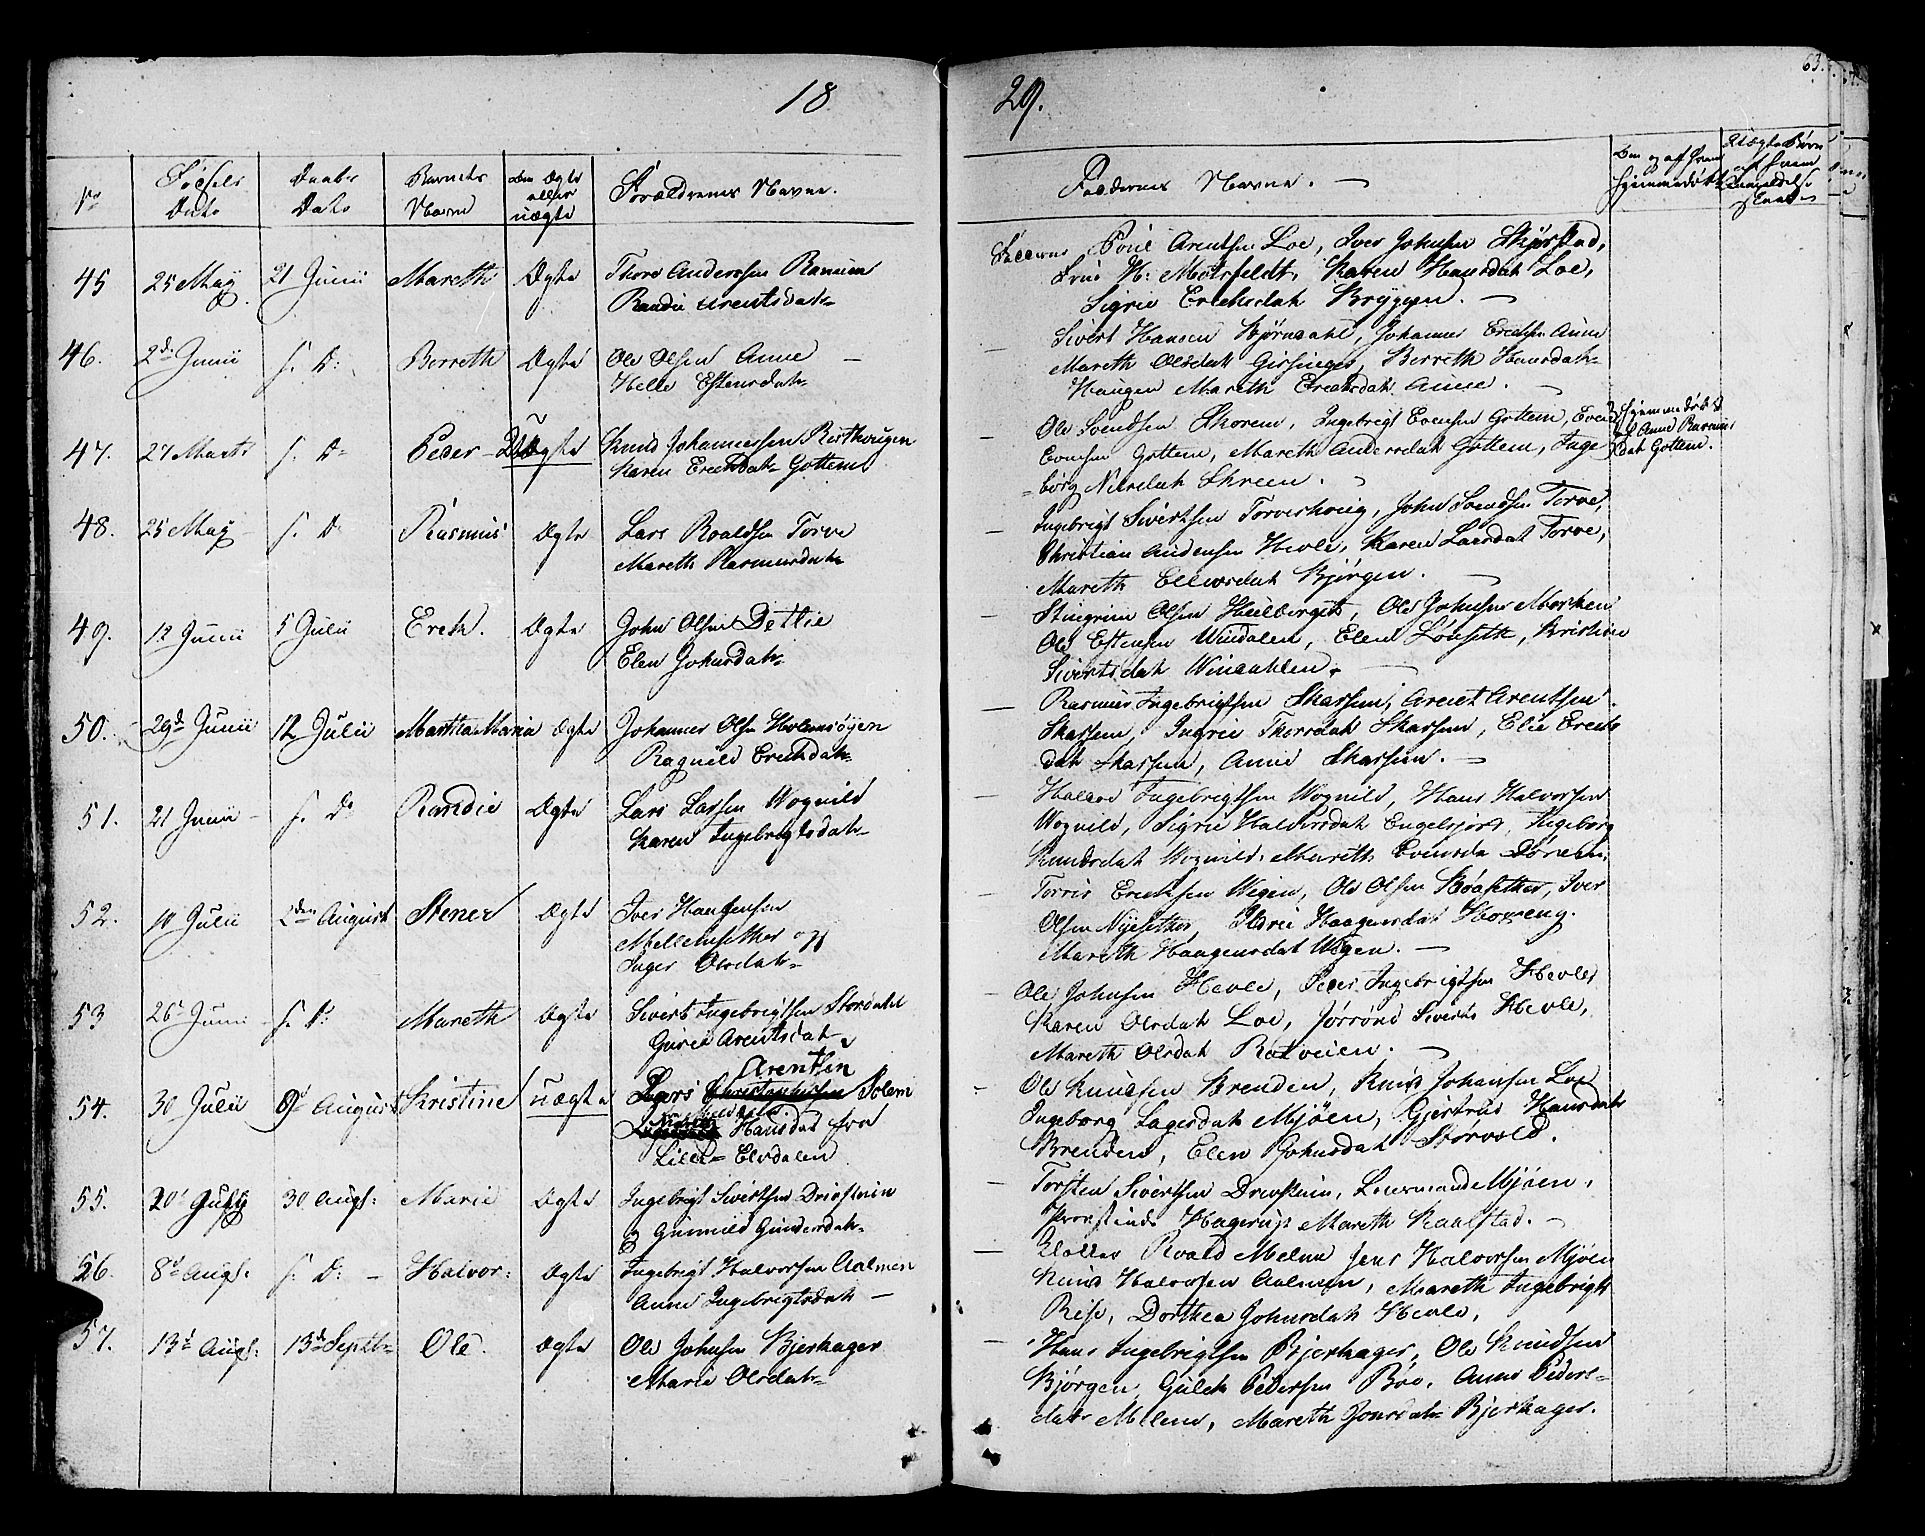 18
29.
63.
No
Fødsels Dato
Daabs Dato
Barnets Navn
Om Ægte eller uægte
Forældrenes Navne.
Faddernes Navne. —
Om og af hvem hjemmedøbt
45 25 May 21 Junii Mareth Ægte Thore Anderssen
Randie Arentsdatr
Fadderne Poul Arentsen Loe, Iver Johnsen Skjørstad,
Frue H: Motsfeldt, Karen Hansdatr Loe,
Sigrie Erichsdatr Bryggen. —
46. 2d Junii s. D: Berreth Ægte Ole Olsen Aune —
Estensdatr
— Sivert Hansen Bjørndahl, Johannes Erichsen Aune
Mareth Olsdatr Berreth Hansdatr
Haugen Mareth Erichsdatr Aune. —
47. 27 Marts s. D: Peder Uægte Knud Johannessen
Karen Erichsdatr Gottem
— Ole Svendsen Skorem, Ingebrigt Evensen Gottem, Even
Evensen Gottem, Mareth Andersdatr Gottem, Inge
=borg Nilsdatr Skreen. —
Hjemmedøbt
af Anne Rasmus
datr Gottem.
48. 25 May s. D: Rasmus Ægte Lars Roaldsen Torve
Mareth Rasmusdatr
— Ingebrigt Sivertsen Torveshoug, John Svendsen Torve,
Christian Andersen Hevle, Karen Larsdat Torve,
Mareth Ellevsdat Bjørgen. —
49. 12 Junii 5 Julii Erek. Ægte John Olsen Detlie
Elen Johnsdatr
— Stingrim Olsen Ole Johnsen Morken
Ole Estensen Windalen, Elen Lønseth, Kristine
Sivertsdat Windahlen. —
50. 29d Junii 12 Julii Martha Maria Ægte Johannes Olsen
Ragnild Erichsdatr
— Rasmus Ingebrigtsen Skassem, Arent Arentsen
Skassem, Ingrie Thorsdatr Skassem, Elie Erichs
dat Skassem, Anne Skassem. —
51. 21 Junii s. D: Randie Ægte Lars Larsen Wognild
Karen Ingebrigtsdatr
— Halvor Ingebrigtsen Wognild, Hans Halvorsen
Wognild, Sigrie Halvorsdatr Engelsjord, Ingeborg
Knudsdatr Wognild, Mareth Evensda
52. 10 Julii 2den August Stener Ægte Iver Haugensen
Mellemsether og
Inger Olsdatr
— Torris Erichsen Wigen, Ole Olsen Bøasether, Iver
Olsen Nyesether, Ildrie Haagensdat
Mareth Haagensdat Wigen. —
53 26 Junii s. D: Mareth Ægte Sivert Ingebrigtsen Stordahl
Guroe Arentsdatr
— Ole Johnsen Hevle, Peder Ingebrigtsen Hevle,
Karen Olsdatr Loe, Jorrond Siverts Hevle,
Mareth Olsdatr Rotveien. —
54. 30 Julii 9d August Kristine uægte Lars Arentsen Solem
Hansdat fra
Lille- Elvdalen
— Ole Knudsen Brenden, Knud Johansen Loe
Ingeborg Lagesdatr Mjøen, Gjertrud Hansdatr
Brenden, Elen Johnsdatr Størvold.
55. 20 Julii 30 Augs: Marie Ægte Ingebrigt Sivertsen Drivstuin
& Gunnild Gundersdatr
— Torsten Sivertsen Drivstuin, Mjøen,
Hagerup Mareth Kaalstad. —
56. 8d Augs: s. D: — Halvor: Ægte Ingebrigt Halvorsen Aalmen
Anne Ingebrigtsdatr —
— Klokker Roald Melum Jens Halvorsen Mjøen
Knud Halvorsen Aalmen, Mareth Ingebrigts
Rise, Dorthea Johnsdatr Hevle,
57. 13d Augs: 13d Septbr Ole. Ægte Ole Johnsen Bjerkager
Marie Olsdatr
— Hans Ingebrigtsen Bjerkager, Ole Knudsen
Bjørgen Gulek Pedersen Bøe, Anne Peders=
datr Melem, Mareth Jonsdatr Bjerkager.